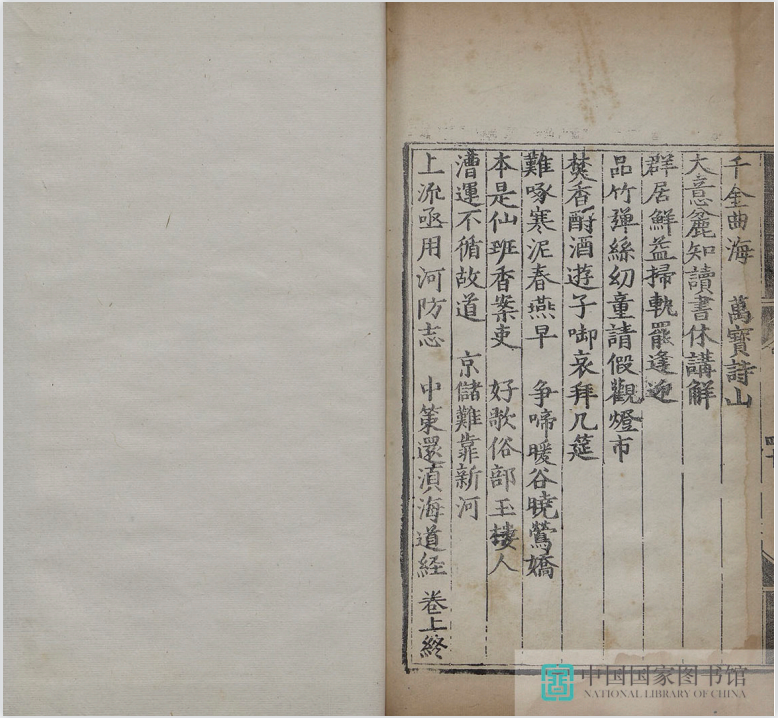 千金曲海 萬寳詩山
大意麄知讀書休講解
群居鮮益掃軌罷逢迎
品竹弹絲幻童請假觀燈市
焚香酹酒遊子啣哀拜几筵
難啄寒泥春燕早 争啼暖谷曉鶯嬌
本是仙班香案吏 好歌俗部玉樓人
漕運不循故道 京儲難靠新河
上流亟用河防志 中策還湏海道經 卷上終
中国国家图书馆
NATIONAL LIBRARY OF CHINA